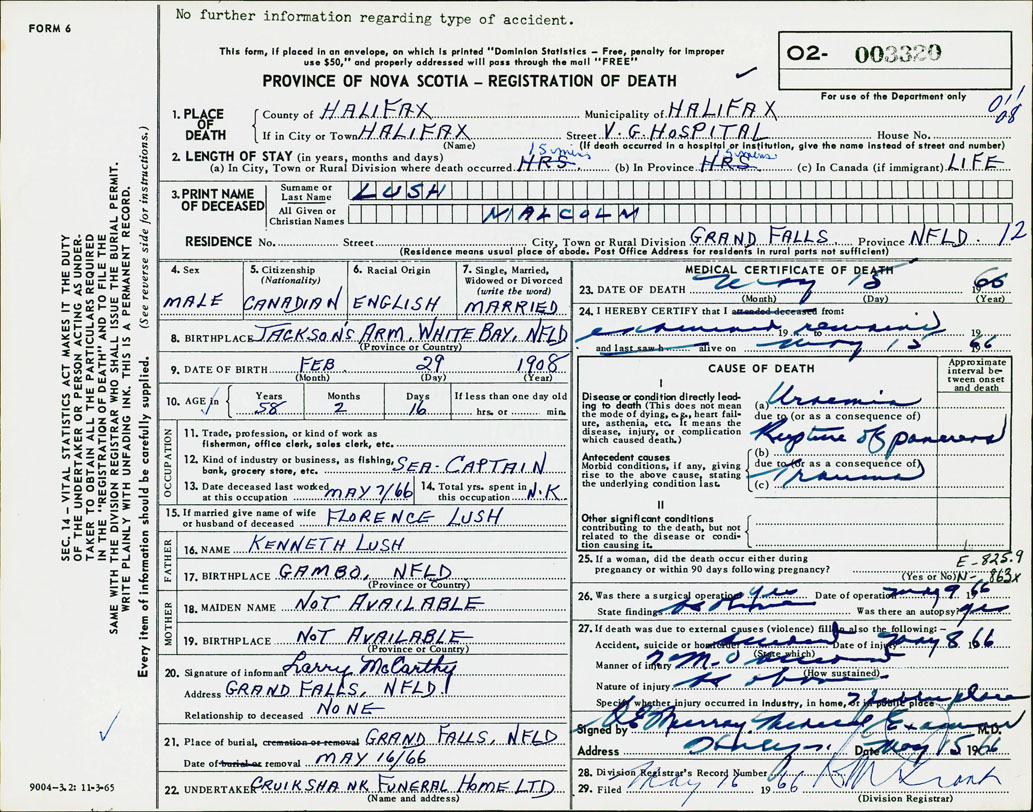 No further information regarding type of accident.
FORM 6
This form, if placed in an envelope, on which is printed "Dominion Statistics – Free, penalty for improper
use $50," and properly addressed will pass through the mail "FREE"
PROVINCE OF NOVA SCOTIA – REGISTRATION OF DEATH
02- 003320
For use of the Department only
011
08
1. PLACE OF DEATH
County of HALIFAX Municipality of HALIFAX
If in City or Town HALIFAX Street V. G. HOSPITAL House No.
(Name) (If death occurred in a hospital or institution, give the name instead of street and number)
2. LENGTH OF STAY (in years, months and days)
(a) In City, Town or Rural Division where death occurred HRS. (b) In Province HRS. (c) In Canada (if immigrant) LIFE
3. PRINT NAME OF DECEASED
Surname or Last Name LUSH
All Given or Christian Names MALCOLM
RESIDENCE No. Street City, Town or Rural Division GRAND FALLS. Province NFLD. 12
(Residence means usual place of abode. Post Office Address for residents in rural parts not sufficient)
4. Sex MALE
5. Citizenship (Nationality) CANADIAN
6. Racial Origin ENGLISH
7. Single, Married, Widowed or Divorced (write the word) MARRIED
8. BIRTHPLACE JACKSON'S ARM, WHITE BAY, NFLD
(Province or Country)
9. DATE OF BIRTH FEB 29 1908
(Month) (Day) (Year)
10. AGE in Years 58 Months 2 Days 16 If less than one day old hrs. or min.
OCCUPATION
11. Trade, profession, or kind of work as
fisherman, office clerk, sales clerk, etc.
12. Kind of industry or business, as fishing,
bank, grocery store, etc. SEA-CAPTAIN
13. Date deceased last worked at this occupation MAY 7/66 14. Total yrs. spent in this occupation N.K
15. If married give name of wife or husband of deceased FLORENCE LUSH
FATHER
16. NAME KENNETH LUSH
17. BIRTHPLACE GAMBO, NFLD
(Province or Country)
MOTHER
18. MAIDEN NAME NOT AVAILABLE
19. BIRTHPLACE NOT AVAILABLE
(Province or Country)
20. Signature of informant Larry McCarthy
Address GRAND FALLS, NFLD.
Relationship to deceased NONE
21. Place of burial, cremation or removal GRAND FALLS, NFLD
Date of burial or removal MAY 16/66
22. UNDERTAKER CRUIKSHANK FUNERAL HOME LTD
(Name and address)
MEDICAL CERTIFICATE OF DEATH
23. DATE OF DEATH May 15 1966
(Month) (Day) (Year)
24. I HEREBY CERTIFY that I attended deceased from:
examined remains 19 to 19
and last saw h alive on May 15 1966
CAUSE OF DEATH
Approximate interval between onset and death
I
Disease or condition directly leading to death (This does not
mean the mode of dying, e.g., heart failure, asthenia, etc. It means the
disease, injury, or complication which caused death.)
(a) Uraemia
due to (or as a consequence of)
Rupture of pancreas
Antecedent causes
Morbid conditions, if any, giving
rise to the above cause, stating
the underlying condition last.
(b)
due to (or as a consequence of)
(c) Trauma
II
Other significant conditions
contributing to the death, but not
related to the disease or condition
causing it.
25. If a woman, did the death occur either during
pregnancy or within 90 days following pregnancy?
(Yes or No)
E-825.9
N-863x
26. Was there a surgical operation yes Date of operation May 9 1966
State findings as above Was there an autopsy? yes
27. If death was due to external causes (violence) fill in also the following:–
Accident, suicide or homicide accident Date of injury May 8 66
(State which)
Manner of injury accident
(How sustained)
Nature of injury as above
Specify whether injury occurred in Industry, in home, or public place Public place
Signed by Murray Medical Examiner M.D.
Address Date May 15 1966
28. Division Registrar's Record Number
29. Filed May 16 1966
(Division Registrar)
SEC. 14 – VITAL STATISTICS ACT MAKES IT THE DUTY
OF THE UNDERTAKER OR PERSON ACTING AS UNDER-
TAKER TO OBTAIN ALL THE PARTICULARS REQUIRED
IN THE "REGISTRATION OF DEATH" AND TO FILE THE
SAME WITH THE DIVISION REGISTRAR WHO SHALL ISSUE THE BURIAL PERMIT.
WRITE PLAINLY WITH UNFADING INK. THIS IS A PERMANENT RECORD.
Every item of information should be carefully supplied. (See reverse side for instructions.)
9004-3.2: 11-3-65